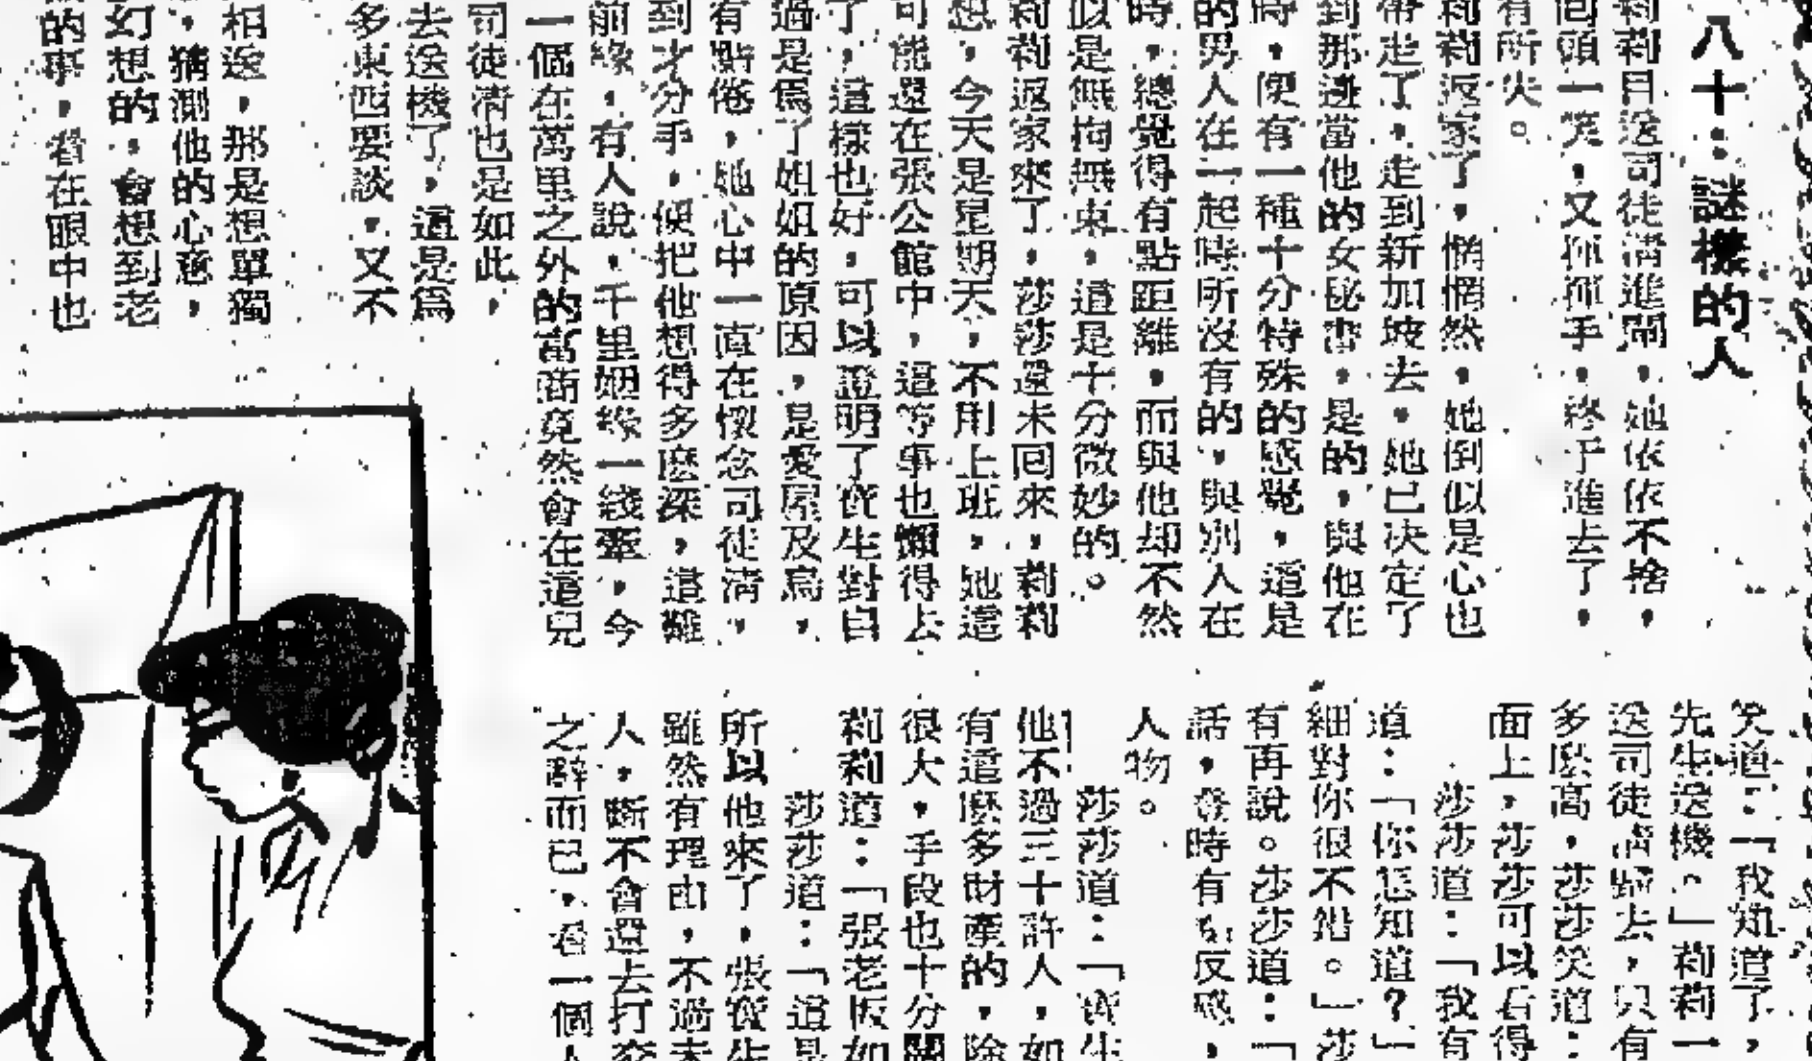 八十：謎樣的人
莉莉目送司徒清進閘，她依依不捨，
回頭一笑，又揮揮手，終于進去了，
有所失。
莉莉返家了，惘惘然，她倒似是心也
帶走了，走到新加坡去。她已决定了
到那邊當他的女秘書，是的，與他在
時，便有一種十分特殊的感覺，這是
的男人在一起時所沒有的，與別人在
時，總覺得有點距離，而與他却不然
似是無拘無束，這是十分微妙的。
莉莉返家來了，莎莎還未回來，莉莉
想，今天是星期天，不用上班，她還
可能還在張公館中，這等事也懶得去
了，這樣也好，可以證明了寶生對自
過是爲了姐姐的原因，是愛屋及烏，
有點倦，她心中一直在懷念司徒清，
到才分手，便把他想得多麼深，這難
前緣，有人說，千里姻緣一綫牽，今
一個在萬里之外的富商竟然會在這兒
司徒清也是如此，
去送機了，這是爲
多東西要談，又不
相送，那是想單獨
，猜測他的心意，
幻想的，會想到老
的事，看在眼中也
笑道：「我知道了，
先生送機。」莉莉一
送司徒清歸去，只有
多麽高，莎莎笑道：
面上，莎莎可以看得
莎莎道：「我有
道：「你怎知道？」
細對你很不錯。」莎
有再說。莎莎道：「
話，登時有點反感，
人物。
莎莎道：「寶生
他不過三十許人，如
有這麽多財產的，除
很大，手段也十分關
莉莉道：「張老板如
莎莎道：「這是
所以他來了，張寶生
雖然有理由，不過未
人，斷不會還去打交
之辭而已，看一個人